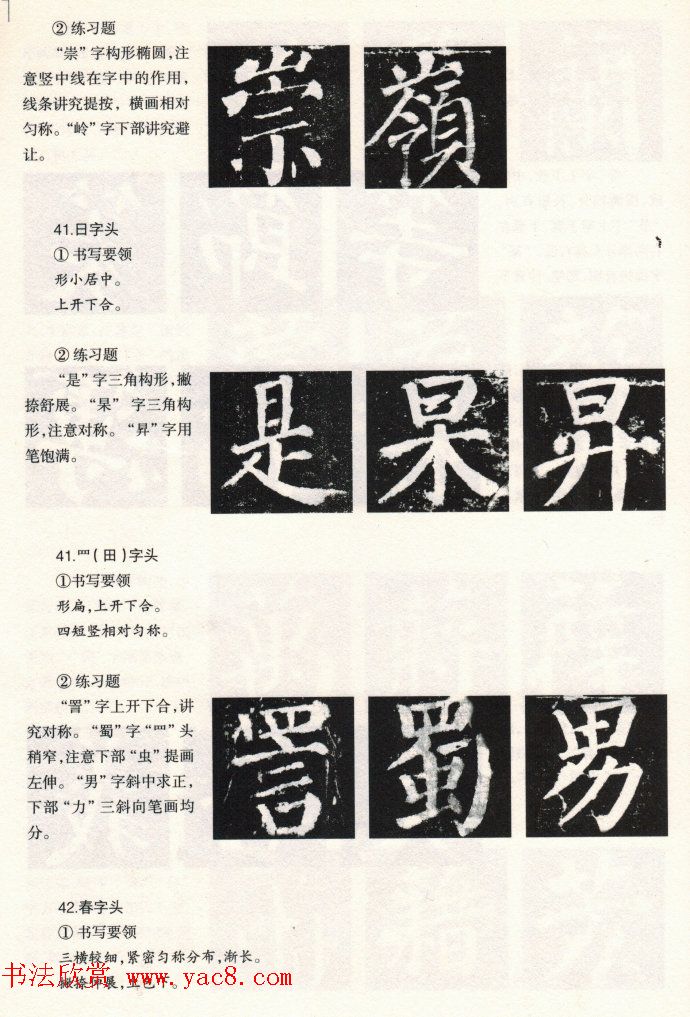 ② 练习题
“崇”字构形椭圆，注
意竖中线在字中的作用，
线条讲究提按，横画相对
匀称。“岭”字下部讲究避
让。
崇 嶺
41.日字头
① 书写要领
形小居中。
上开下合。
② 练习题
“是”字三角构形，撇
捺舒展。“杲”字三角构
形，注意对称。“昇”字用
笔饱满。
是 杲 昇
41.罒（田）字头
①书写要领
形扁，上开下合。
四短竖相对匀称。
② 练习题
“詈”字上开下合，讲
究对称。“蜀”字“罒”头
稍窄，注意下部“虫”提画
左伸。“男”字斜中求正，
下部“力”三斜向笔画均
分。
詈 蜀 男
42.春字头
① 书写要领
三横较细，紧密匀称分布，渐长。
书法欣赏 www.yac8.com
撇捺伸展，